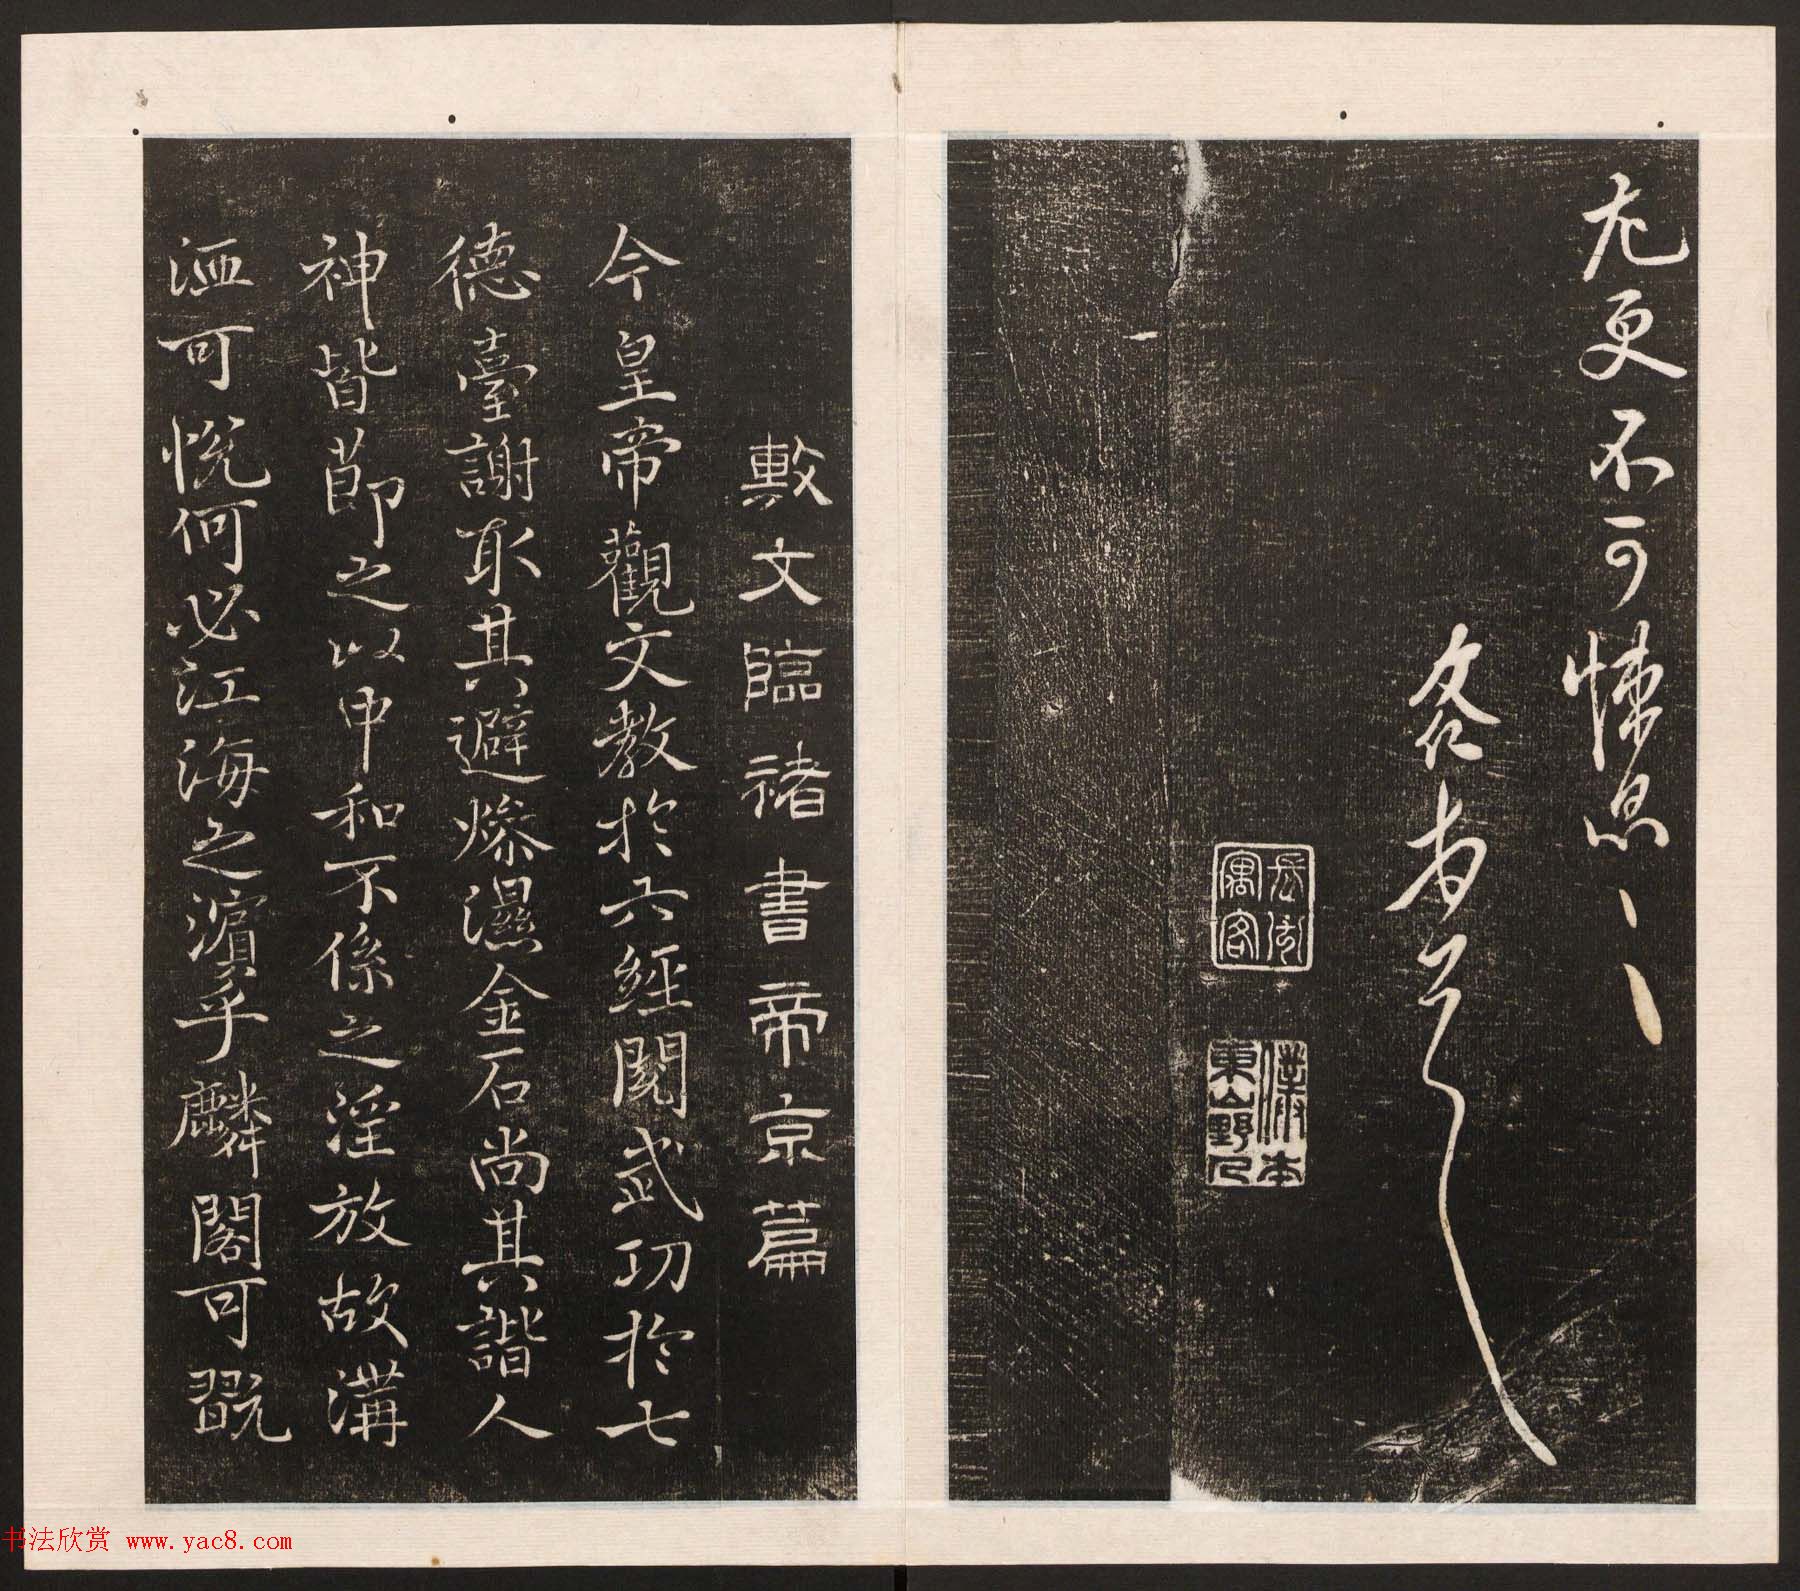 尤更不可悚息
敷文臨褚書帝京篇
今皇帝觀文教於六經閱武功於七
德臺謝取其避燥濕金石尚其諧人
神皆節之以中和不係之淫放故溝
洫可悅何必江海之濵乎麟閣可翫
书法欣赏 www.yac8.com